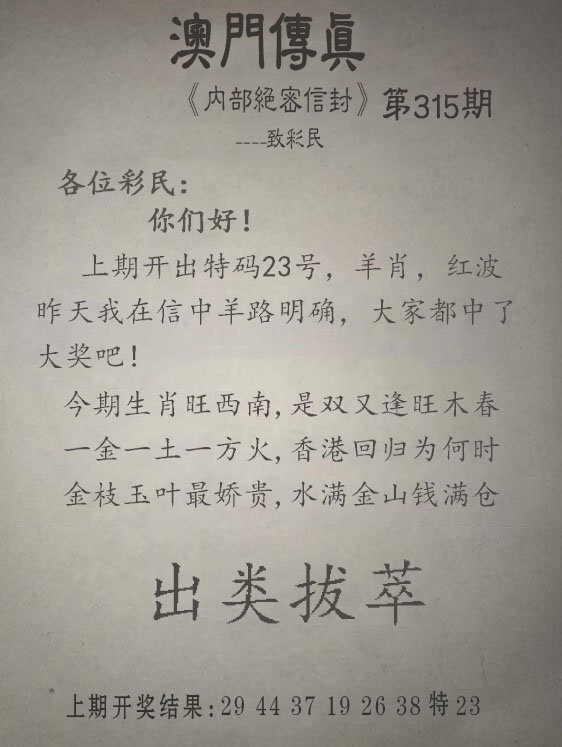 澳門傳眞
《内部絕密信封》第315期
----致彩民
各位彩民:
你们好!
上期开出特码23号，羊肖，红波
昨天我在信中羊路明确，大家都中了
大奖吧!
今期生肖旺西南,是双又逢旺木春
一金一土一方火,香港回归为何时
金枝玉叶最娇贵,水满金山钱满仓
出类拔萃
上期开奖结果:29 44 37 19 26 38 特 23